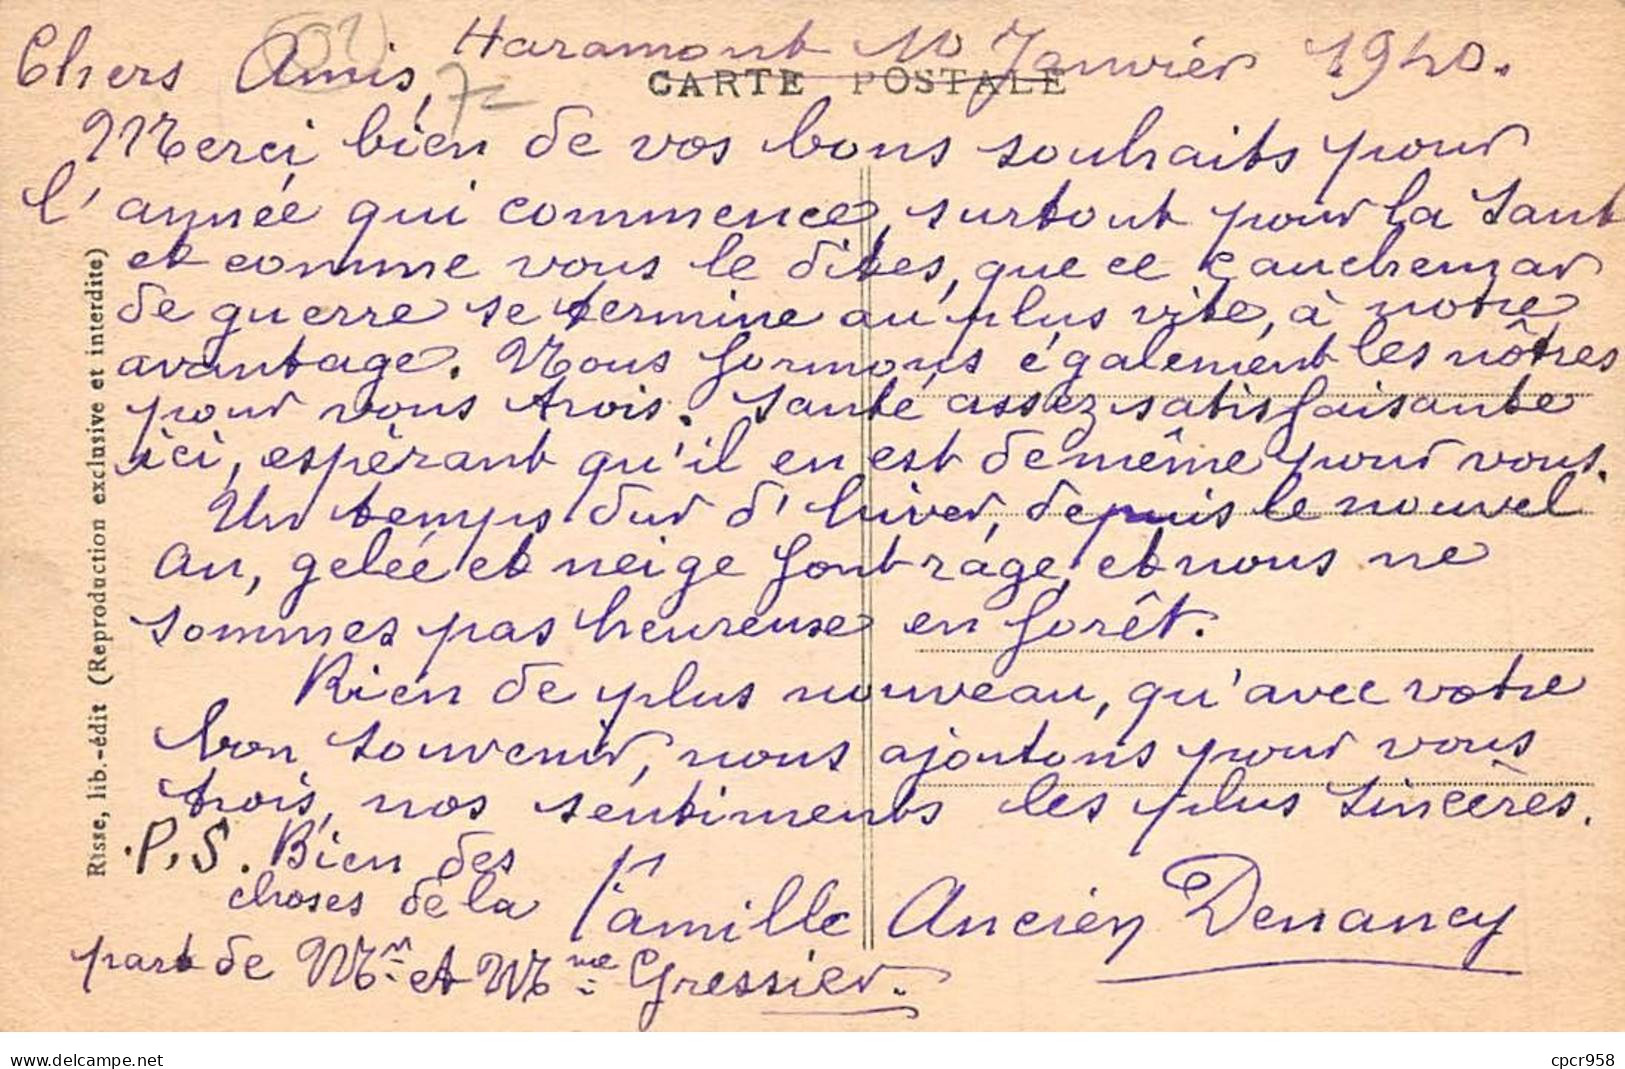 Haramont 10 Janvier 1940.
Chers Amis,
CARTE POSTALE
Merci bien de vos bons souhaits pour
l'année qui commence, surtout pour la sant
et comme vous le dites, que ce cauchemar
de guerre se termine au plus vite, à notre
avantage. Nous formons également les nôtres
pour vous trois. Santé assez satisfaisante
ici, espérant qu'il en est de même pour vous.
Un temps dur d'hiver, depuis le nouvel
an, gelée et neige font rage, et nous ne
sommes pas heureuse en forêt.
Rien de plus nouveau, qu'avec votre
bon souvenir, nous ajoutons pour vous
trois, nos sentiments les plus sincères.
Famille Ancien Denancy
P.S. Bien des
choses de la
part de Mr et Mme Gressier.
Risse, lib.-édit (Reproduction exclusive et interdite)
www.delcampe.net
cpcr958